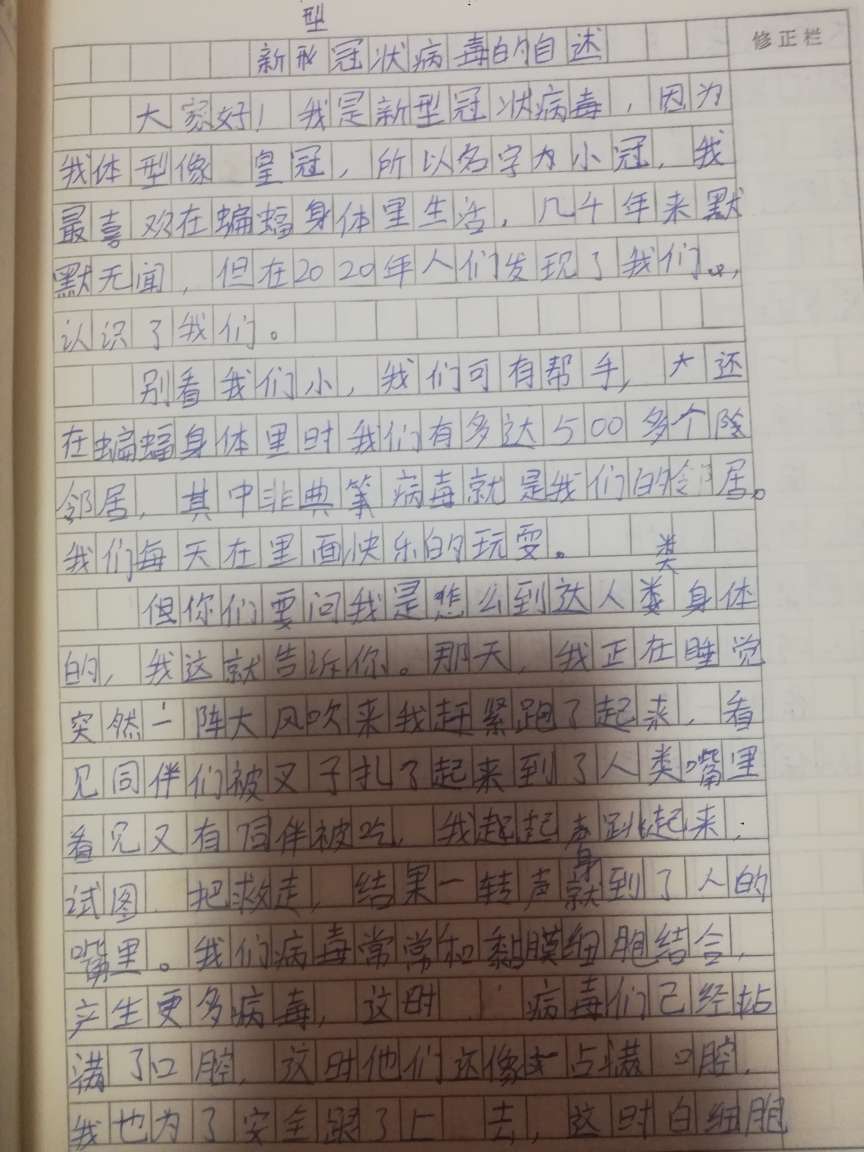 型
新形冠状病毒的自述
修正栏
大家好！我是新型冠状病毒，因为
我体型像 皇冠，所以名字为小冠，我
最喜欢在蝙蝠身体里生活，几千年来默
默无闻，但在2020年人们发现了我们，
认识了我们。
别看我们小，我们可有帮手，大还
在蝙蝠身体里时我们有多达500多个险
邻居，其中非典等病毒就是我们的邻居。
我们每天在里面快乐的玩耍。
类
但你们要问我是怎么到达人类身体
的，我这就告诉你。那天，我正在睡觉
突然一阵大风吹来我赶紧跑了起来，看
见同伴们被叉子扎了起来到了人类嘴里
看见又有同伴被吃，我起起声跳起来，
身
试图 把救走，结果一转声就到了人的
嘴里。我们病毒常常和黏膜细胞结合，
产生更多病毒，这时 病毒们已经拈
满了口腔，这时他们还像 占满口腔，
我也为了安全跟了上 去，这时白细胞